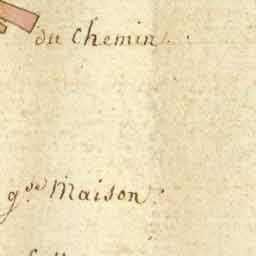 du chemin.
gde. Maison.